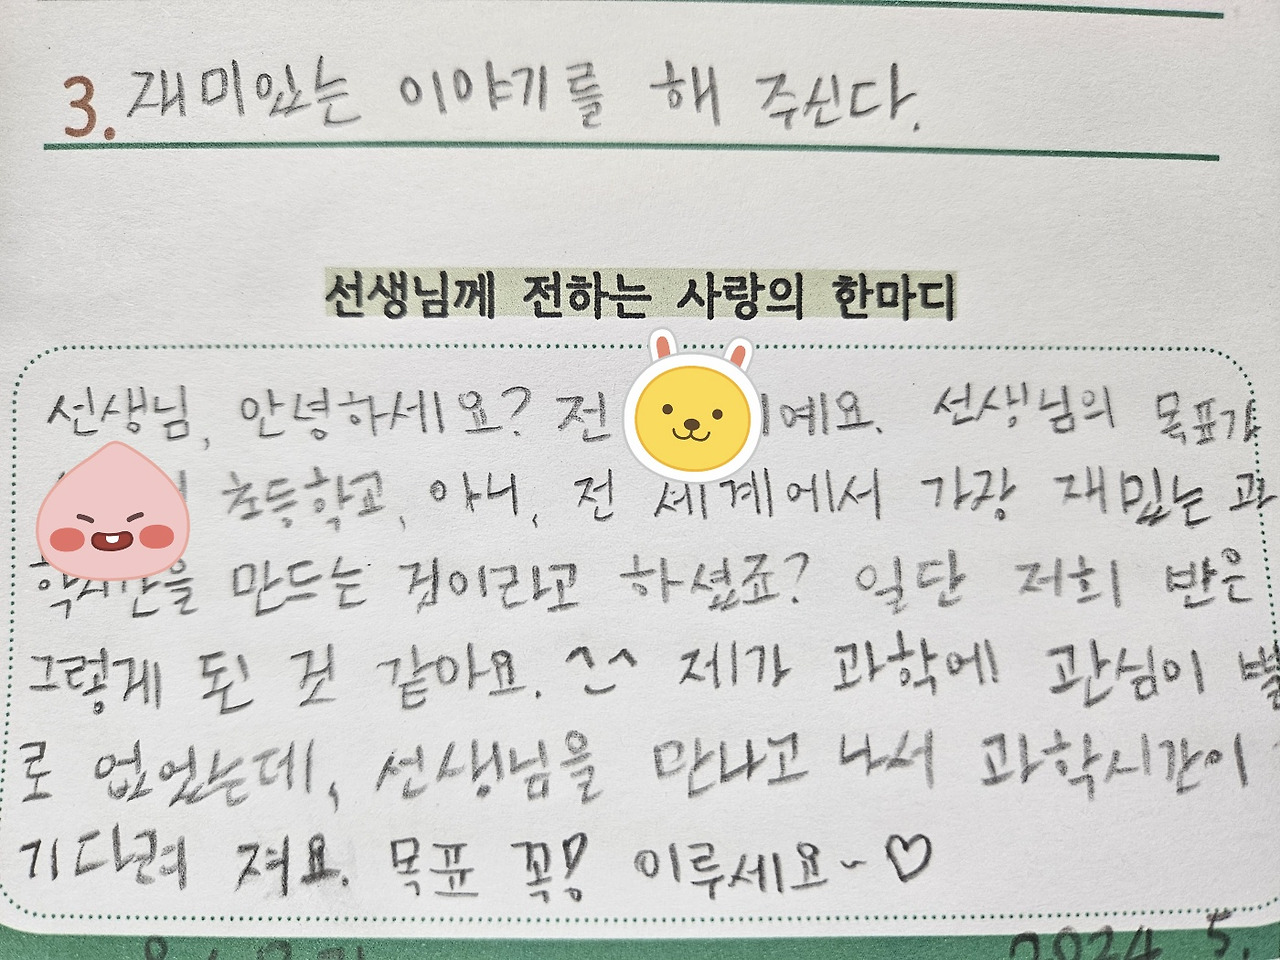 3. 재미있는 이야기를 해 주신다.
선생님께 전하는 사랑의 한마디
선생님, 안녕하세요? 전 이예요. 선생님의 목표가
초등학교, 아니, 전 세계에서 가장 재밌는 과
학시간을 만드는 것이라고 하셨죠? 일단 저희 반은
그렇게 된 것 같아요. ^-^ 제가 과학에 관심이 별
로 없었는데, 선생님을 만나고 나서 과학시간이
기다려 져요. 목표 꼭! 이루세요~♡
2024. 5.